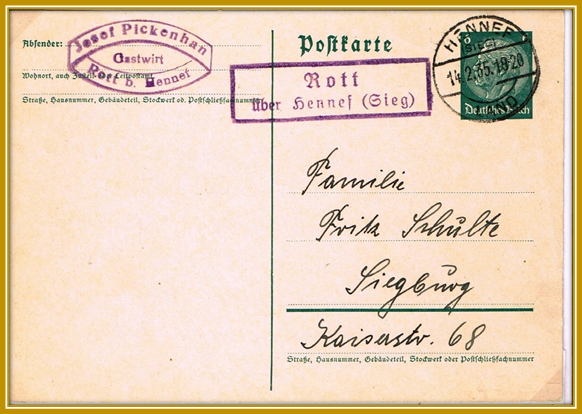 Absender:
Josef Pickenhan
Gastwirt
Rott b. Hennef
Wohnort, auch Zustell- od. Leitpostamt
Straße, Hausnummer, Gebäudeteil, Stockwerk od. Postschließfachnummer
Postkarte
Rott
über Hennef (Sieg)
HENNEF
(SIEG)
14.2.35.19-20
6
Deutsches Reich
Familie
Fritz Schulte
Siegburg
Kaiserstr. 68
Straße, Hausnummer, Gebäudeteil, Stockwerk oder Postschließfachnummer